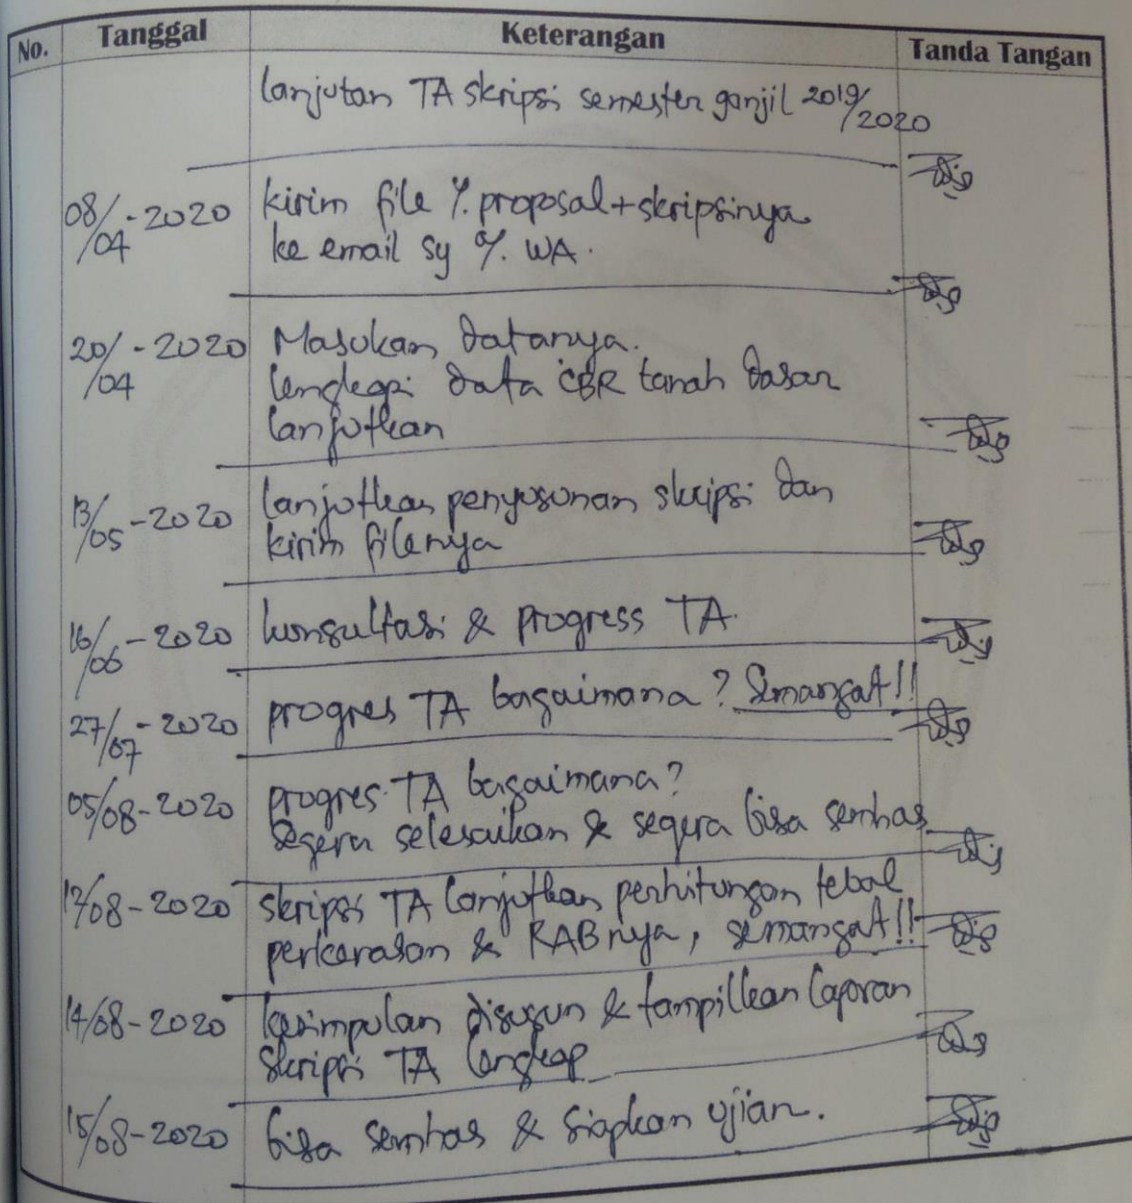 No. Tanggal Keterangan Tanda Tangan
lanjutan TA skripsi semester ganjil 2019/2020
08/04-2020 kirim file %. proposal+skripsinya
ke email sy %. WA.
20/04-2020 Masukan datanya.
lengkapi data CBR tanah dasar
lanjutkan
13/05-2020 lanjutkan penyusunan skripsi dan
kirim filenya
16/06-2020 konsultasi & progress TA.
27/07-2020 progres TA bagaimana? Semangat!!
05/08-2020 progres TA bagaimana?
Segera selesaikan & segera bisa semhas
12/08-2020 skripsi TA lanjutkan perhitungan tebal
perkerasan & RABnya, semangat!!
14/08-2020 kesimpulan disusun & tampilkan laporan
skripsi TA lengkap
15/08-2020 bisa semhas & siapkan ujian.